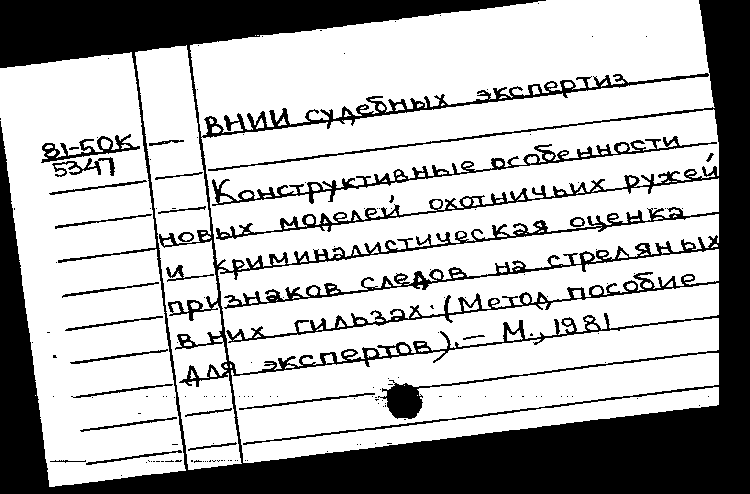 ВНИИ судебных экспертиз
81-50К
5347
Конструктивные особенности
новых моделей охотничьих ружей
и криминалистическая оценка
признаков следов на стреляных
в них гильзах: (Метод. пособие
для экспертов). – М., 1981